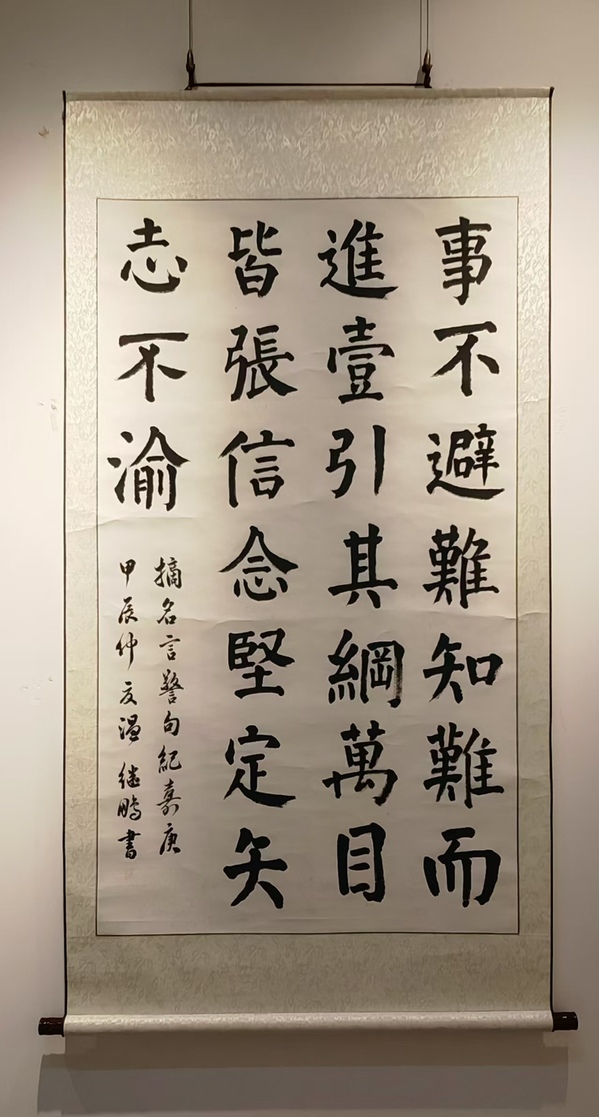 事不避難知難而
進壹引其綱萬目
皆張信念堅定矢
志不渝
摘名言警句紀嘉庚
甲辰仲夏溫继鵬書